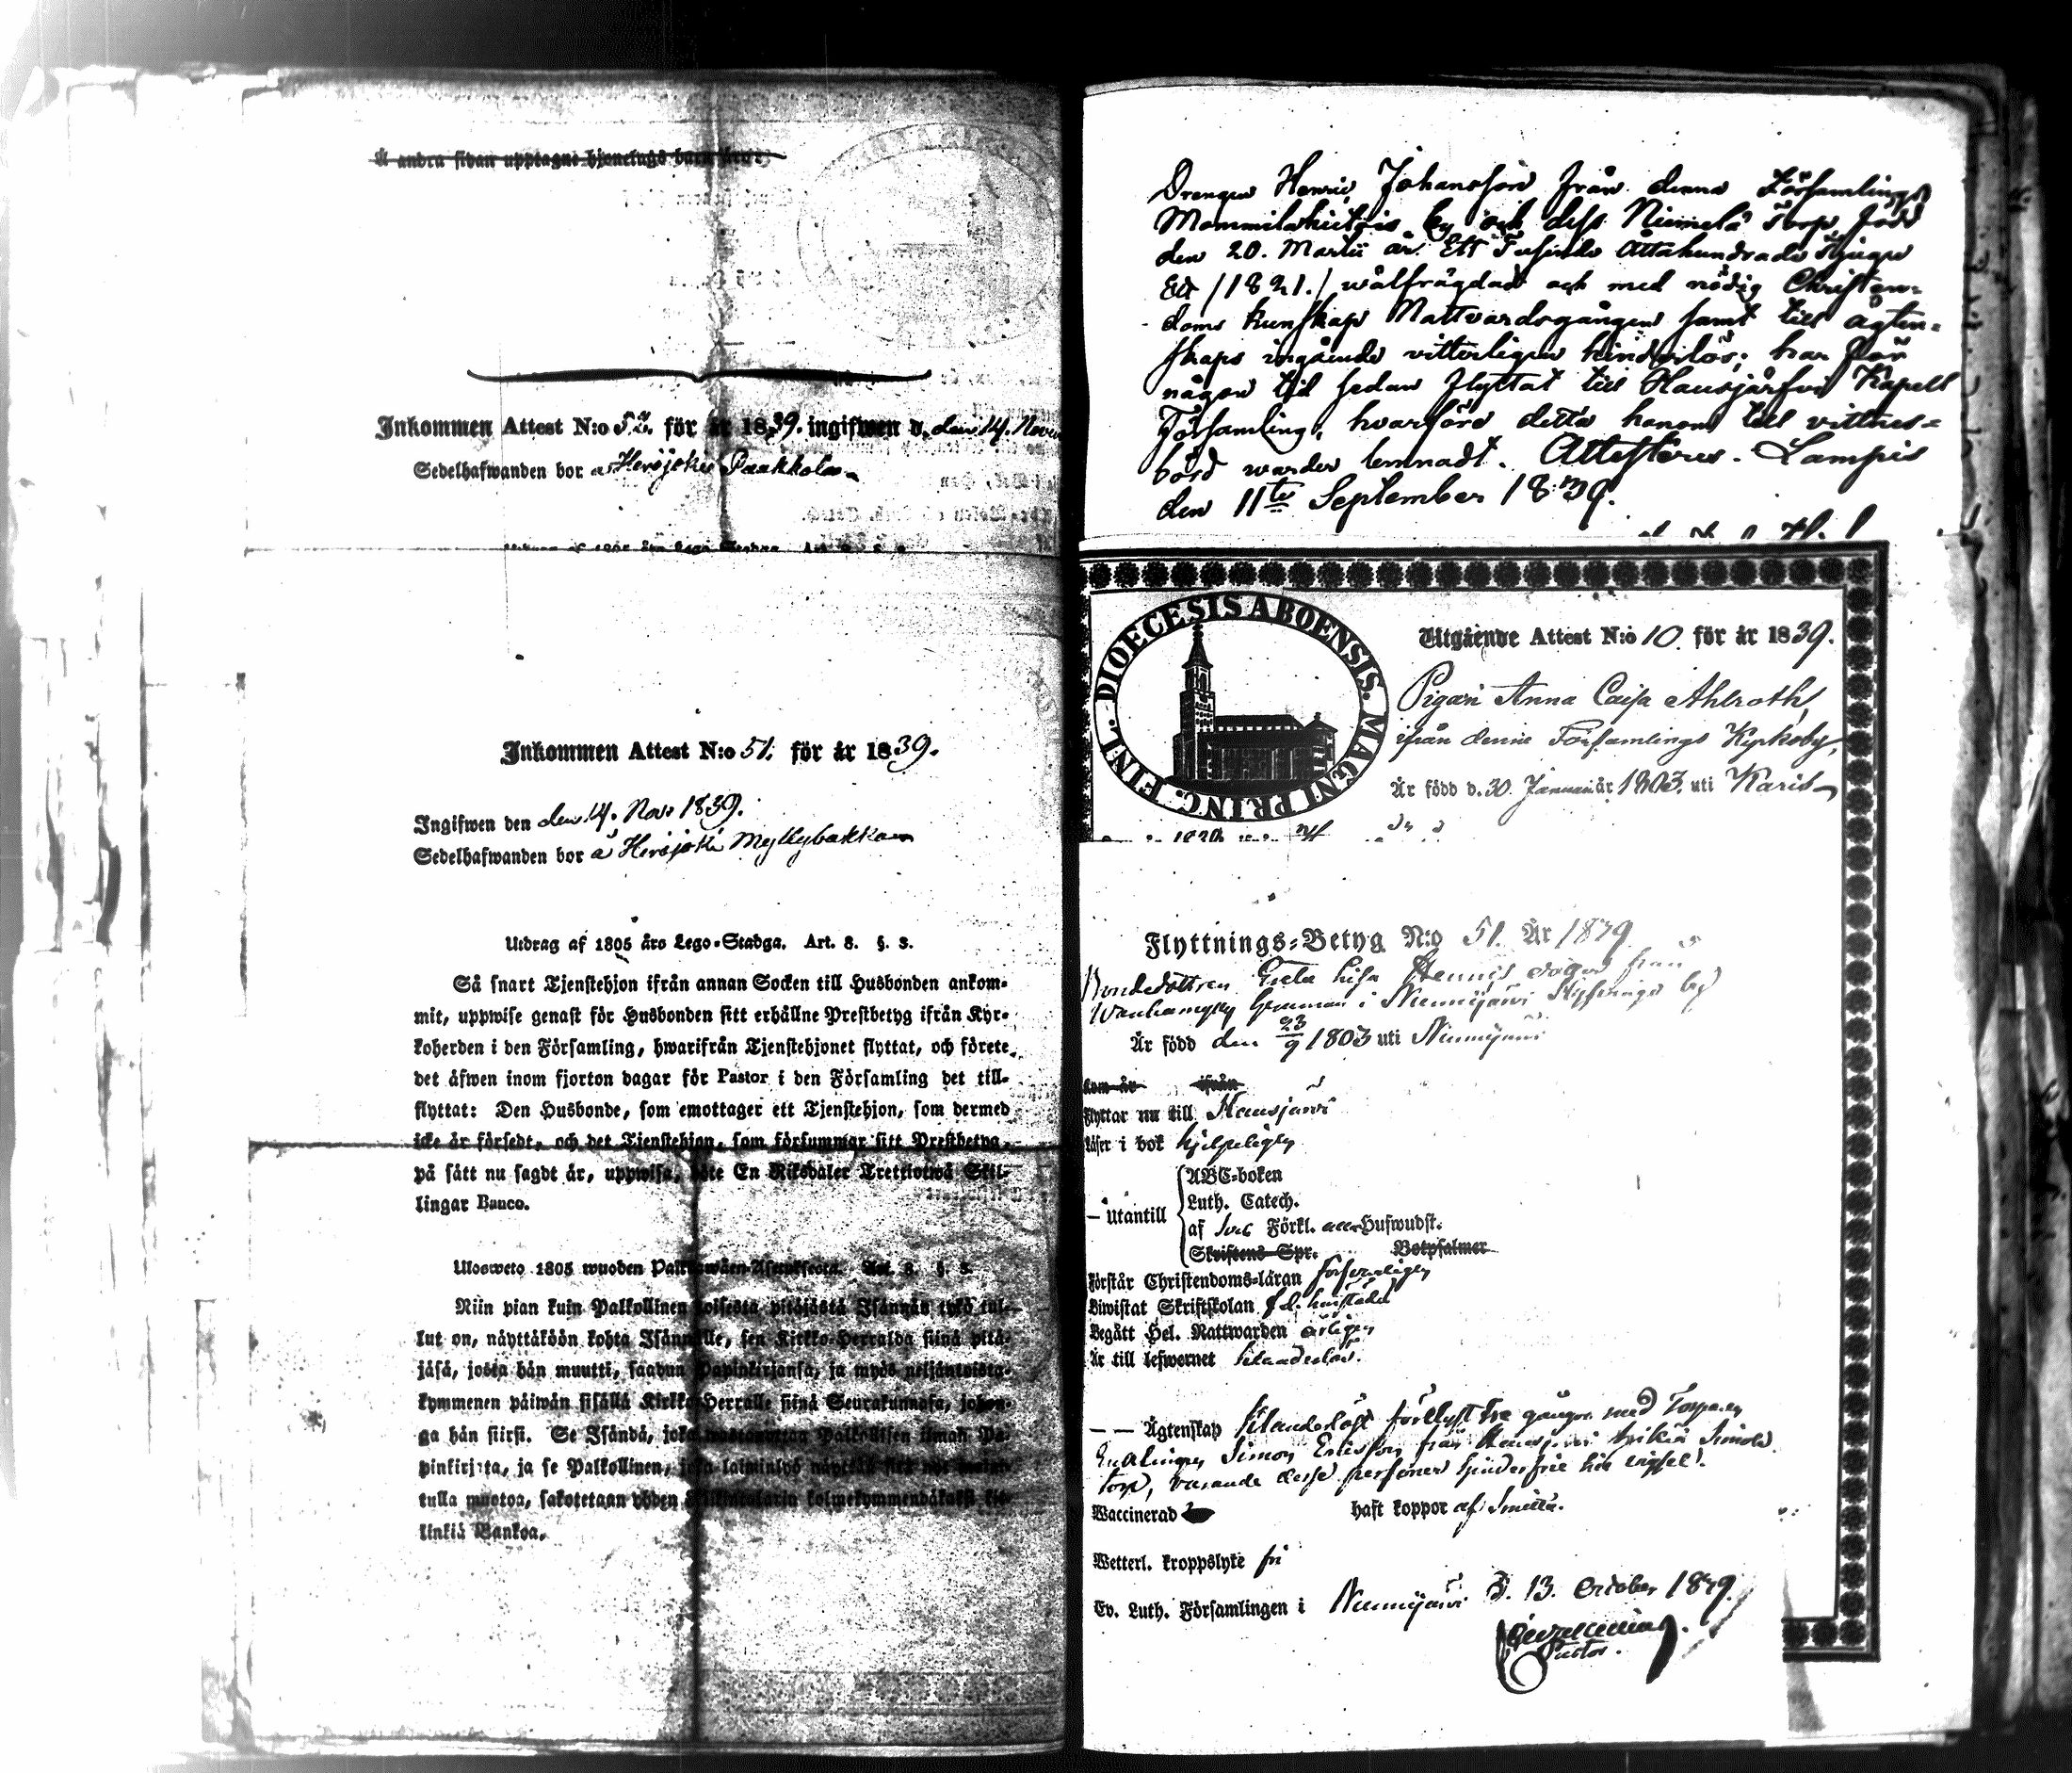 Å andra sidan upptagne hjonelags barn äro:
Inkommen Attest N:o 52. för år 1839. ingifwen d. den 14. Nov
Sedelhafwanden bor å Herajoki Paakkola
Inkommen Attest N:o 51. för år 1839.
Ingifwen den den 14. Nov. 1839.
Sedelhafwanden bor å Herajoki Myllybakka
Utdrag af 1805 års Lego-Stadga. Art. 8. §. 3.
Så snart Tjenstehjon ifrån annan Socken till Husbonden ankom-
mit, uppwise genast för Husbonden sitt erhållne Prestbetyg ifrån Kyr-
koherden i den Församling, hwarifrån Tjenstehjonet flyttat, och förete
det äfwen inom fjorton dagar för Pastor i den Församling det till-
flyttat: Den Husbonde, som emottager ett Tjenstehjon, som dermed
icke är försedt, och det Tjenstehjon, som försummar sitt Prestbetyg
på sätt nu sagdt är, uppwisa, böte En Riksdaler Trettiotwå Skil-
lingar Banco.
Ulosweto 1805 wuoden Palkkawäen-Asetuksesta. Art. 8. §. 3.
Niin pian kuin Palkollinen toisesta pitäjästä Isännän tykö tul-
lut on, näyttäköön kohta Isännälle, sen Kirkko-Herralda siinä pitä-
jäsä, josta hän muutti, saadun Papinkirjansa, ja myös neljäntoista-
kymmenen päiwän sisällä Kirkko-Herralle siinä Seurakunnasa, johon-
ga hän siirsi. Se Isändä, joka wastanottaa Palkollisen ilman Pa-
pinkirjata, ja se Palkollinen, joka laiminlyö
tulla muotoa, sakotetaan yhden Riikintalarin kolmekymmendäkaksi kil-
linkiä Bankoa.
Drengen Henric Johansson från denna Församlings
Mommilahietois by och dess Niemelä Torp, född
den 20. Martii år Ett Tusende Åttahundrade Tjugu
Ett /1821./ wälfrägdad och med nödig Christen-
doms kunskap Nattvardsgången samt till ägten-
skaps ingående vitterligen hinderlös; har för
någon tid sedan flyttat till Hausjärfvi Kapell
Församling, hvarföre detta honom till vittnes-
börd warder lemnadt. Attesteres. Lampis
den 11te September 1839.
DIOECESIS ABOENSIS. MAGNI PRINC. FINL.
Utgående Attest N:o 10. för år 1839.
Pigan Anna Caisa Ahlroth,
ifrån denne Församlings Kyrkoby,
Är född d. 30. Januari år 1803. uti Karis
Flyttnings-Betyg N:o 51. År 1839
Bondedottren Greta Lisa Hennis dotter från
i Nummijärvi by
Är född den 23/9 1803 uti Nummijärvi
Kom år ifrån
Flyttar nu till Hausjärvi
Läser i bok hjelpeligen
— Utantill
ABC-boken
Luth. Catech.
af Sveb. Förkl. alla Hufwudst.
Skriftens Spr. Botpsalmer
Förstår Christendoms-läran försvarligen
Biwistat Skriftskolan
Begått Hel. Nattwarden årligen
Är till lefwernet klanderlös.
— — Ägtenskap klanderlöst förlyst tre gånger med Torparen
Enklingen Simon Ericsson från Hausjärvi
torp, varande desse personer hinderfrie till vigsel.
Waccinerad haft koppor af Smitta.
Wetterl. kroppslyte fri
Ev. Luth. Församlingen i Nummijärvi d. 13. October 1839.
Pastor.